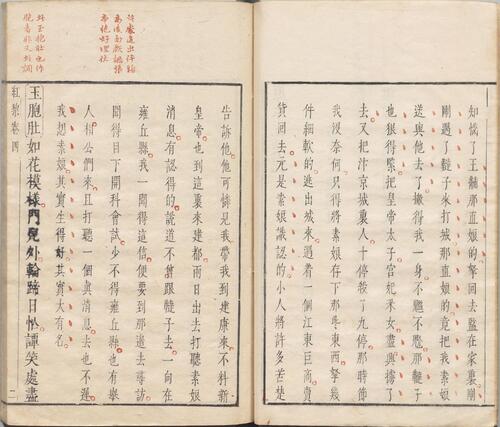 知惱了王黼那直娘的拏回去監在家裏剛
剛遇了韃子來打城那直娘的竟把我素娘
送與他去了撇得我一身不尷不尬那韃子
也狠得緊把皇帝太子宮妃釆女盡興擄了
去又把汴京城裏人十停殺了九停那時節
我沒奈何只得將素娘存下那些東西拏幾
件細軟的逃出城來遇着一個江東巨商賣
貨回去元是素娘識認的小人將許多苦楚
告訴他他可憐見我帶我到建康來不料新
皇帝也到這裏來建都兩日出去打聽素娘
消息有認得的説道不曾跟韃子去一向在
雍丘縣我一聞得這信便要到那邊去尋訪
聞得目下開科會試少不得雍丘縣也有舉
人相公們來且打聽一個眞消息去也不遲
我想素娘其實生得好其實大有名
玉胞肚如花模樣門兒外輪蹄日怱譚笑處盡
紅梨卷四 二
本絕好埋伏
此玉抱肚也作